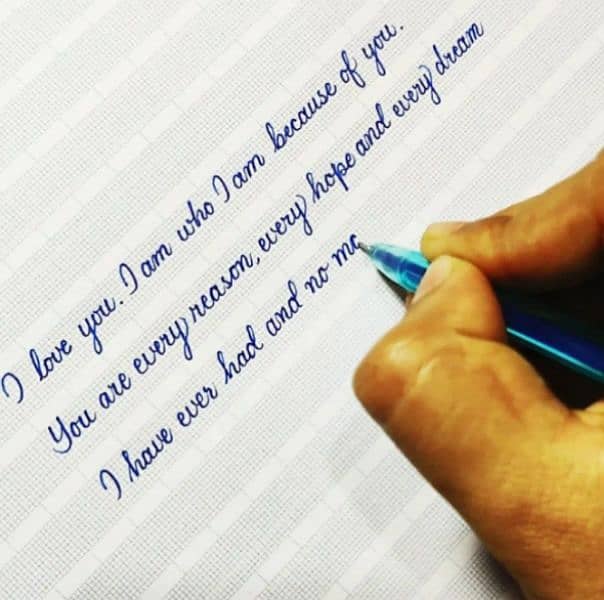 I love you. I am who I am because of you.
You are every reason, every hope and every dream
I have ever had and no ma